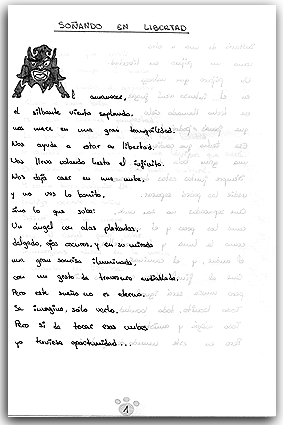 SOÑANDO EN LIBERTAD
l amanecer,
el silbante viento soplando.
nos mece en una gran tranquilidad.
Nos ayuda a estar en libertad.
Nos lleva volando hasta el infinito.
Nos deja caer en una nube,
y no ves lo bonito,
sino lo que sube:
Un ángel con alas plateadas,
delgado, ojos oscuros, y en su mirada
una gran sonrisa iluminada,
con un gesto de travesura
Pero este sueño no es eterno.
Se imagina, sólo verlo.
Pero si de tocar esas nubes
yo tuviese oportunidad...
1